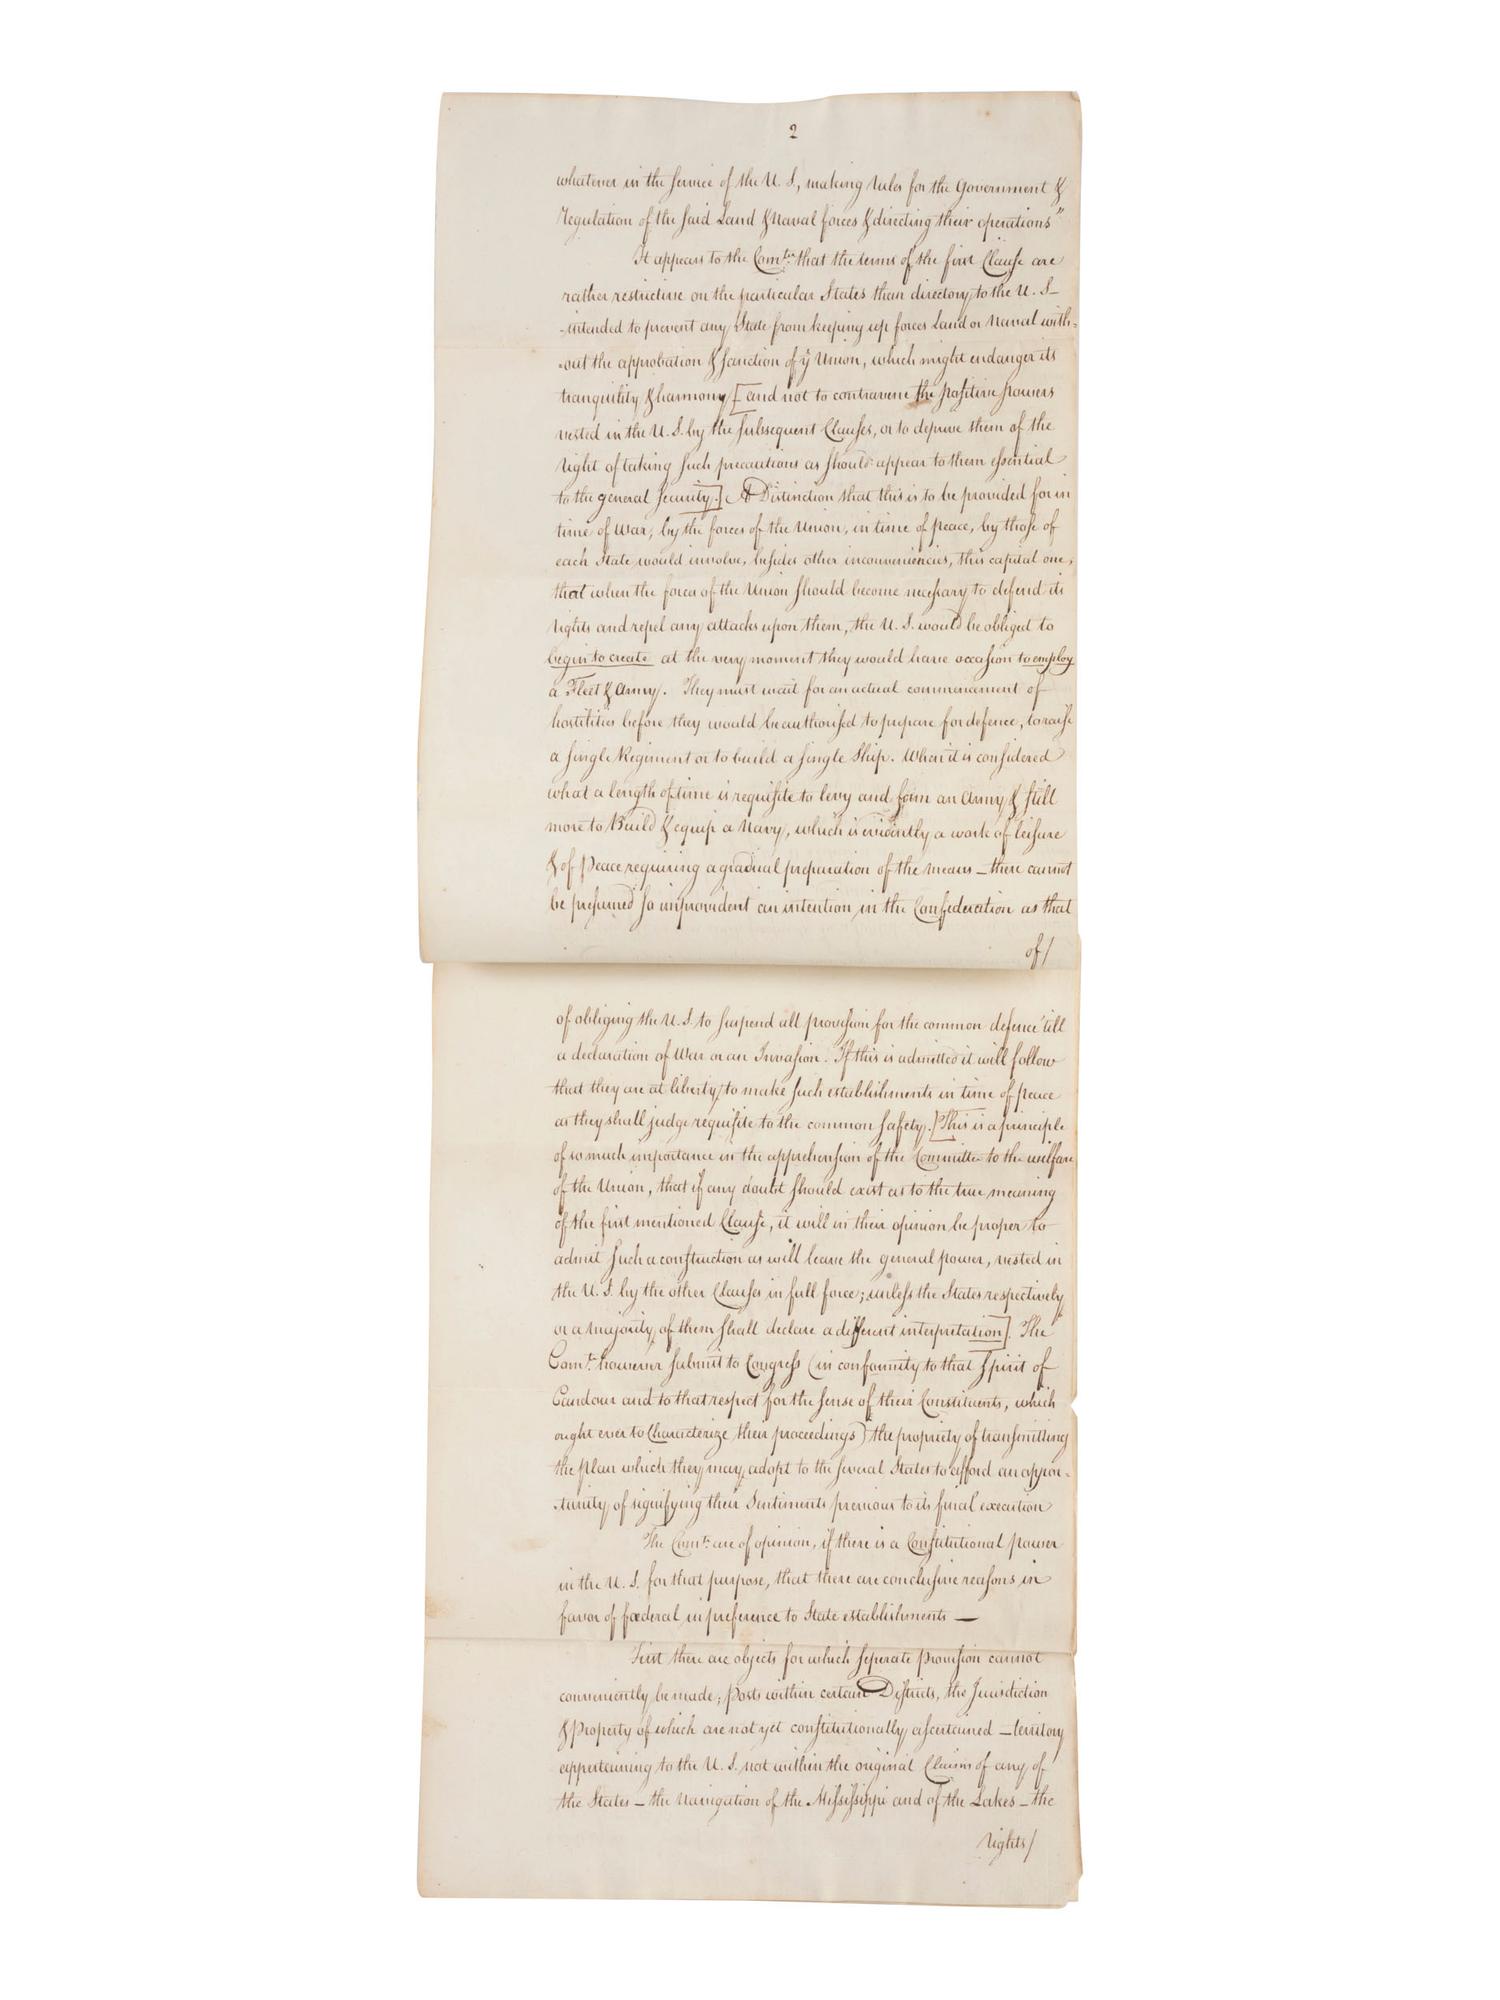 2
whatever in the service of the U. S, making rules for the Government &
regulation of the said Land & Naval forces & directing their operations"
It appears to the Comtee. that the terms of the first Clause are
rather restrictive on the particular States than directory to the U. S_
-intended to prevent any State from keeping up forces Land or Naval with=
=out the approbation & sanction of ye Union, which might endanger its
tranquility & harmony [and not to contravene the positive powers
vested in the U. S. by the subsequent Clauses, or to deprive them of the
right of taking such precautions as should appear to them essential
to the general security.] A Distinction that this is to be provided for in
time of War, by the forces of the Union, in time of peace, by those of
each State would involve, besides other inconveniencies, this capital one,
that when the forces of the Union should become necessary to defend its
rights and repel any attacks upon them, the U. S. would be obliged to
begin to create at the very moment they would have occasion to employ
a Fleet & Army. They must wait for an actual commencement of
hostilities before they would be authorised to prepare for defence, to raise
a single Regiment or to build a single Ship. When it is considered
what a length of time is requisite to levy and form an Army & still
more to Build & equip a Navy, which is evidently a work of leisure
& of Peace requiring a gradual preparation of the means _ there cannot
be presumed so improvident an intention in the Confederation as that
of/
of obliging the U. S. to suspend all provision for the common defence 'till
a declaration of War or an Invasion. If this is admitted it will follow
that they are at liberty to make such establishments in time of peace
as they shall judge requisite to the common safety. [This is a principle
of so much importance in the apprehension of the Committee to the welfare
of the Union, that if any doubt should exist as to the true meaning
of the first mentioned Clause, it will in their opinion be proper to
admit such a construction as will leave the general power, vested in
the U. S. by the other Clauses in full force; unless the States respectively
or a majority of them shall declare a different interpretation]. The
Comte. however submit to Congress (in conformity to that spirit of
Candour and to that respect for the sense of their Constituents, which
ought ever to Characterize their proceedings) the propriety of transmitting
the plan which they may adopt to the several States to afford an oppor=
=tunity of signifying their Sentiments previous to its final execution
The Comte. are of opinion, if there is a Constitutional power
in the U. S. for that purpose, that there are conclusive reasons in
favor of fœderal in preference to State establishments —
First there are objects for which seperate provision cannot
conveniently be made; posts within certain Districts, the Jurisdiction
& Property of which are not yet constitutionally ascertained — territory
appertaining to the U. S. not within the original Claims of any of
the States — the Navigation of the Mississippi and of the Lakes — the
rights/